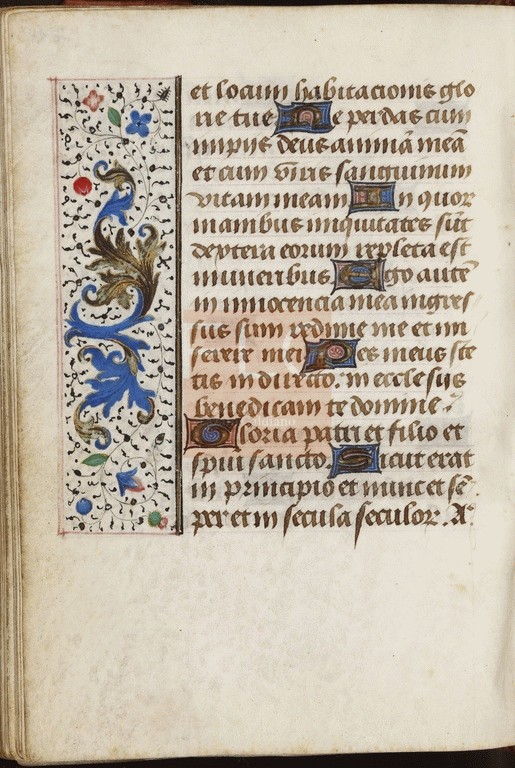 et locum habitacionis glo
rie tue Ne perdas cum
impijs deus aīmā meā
et cum viris sanguinum
vitam meam In quor
manibus iniquitates sūt
deptera eorum repleta est
muneribus Ego autē
in innocencia mea ingres
sus sum redime me et mi
serere mei Pes meus ste
tit in directo in ecclesijs
benedicam te domine
Gloria patri et filio et
spiui sancto Sicut erat
in principio et nunc et sē
per et in secula seculoꝝ. A